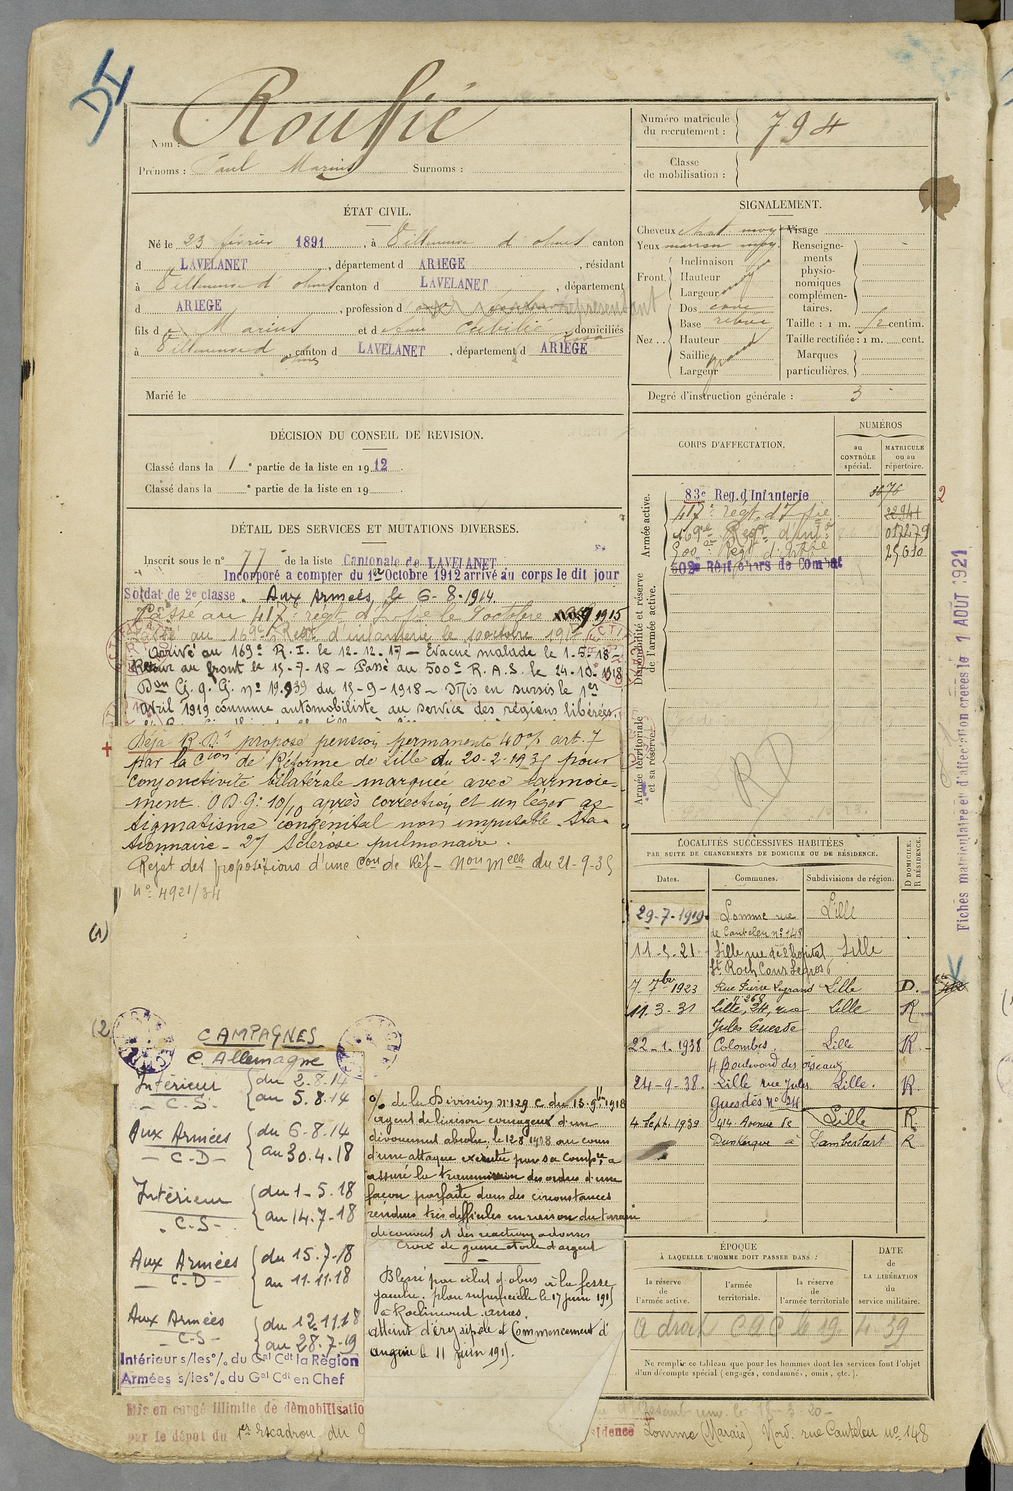 Nom : Roufié
Prénoms : Paul Marius Surnoms :
Numéro matricule du recrutement : 794
Classe de mobilisation :
ÉTAT CIVIL.
Né le 23 février 1891, à Villeneuve d'olmes canton
d LAVELANET, département d ARIEGE, résidant
à Villeneuve d'olmes canton d LAVELANET, département
d ARIEGE, profession d représentant
fils d e Marius et d domiciliés
à Villeneuve d olmes canton d LAVELANET, département d ARIEGE
Marié le
SIGNALEMENT.
Cheveux chat. moy Visage
Yeux marron moy. Renseignements physionomiques complémentaires.
Front. Inclinaison
Hauteur
Largeur
Nez. Dos cave
Base
Hauteur
Saillie
Largeur
Taille : 1 m. centim.
Taille rectifiée : 1 m. cent.
Marques particulières.
Degré d'instruction générale : 3
DÉCISION DU CONSEIL DE REVISION.
Classé dans la 1e partie de la liste en 1912.
Classé dans la e partie de la liste en 19
DÉTAIL DES SERVICES ET MUTATIONS DIVERSES.
Inscrit sous le n° 77 de la liste Cantonale de LAVELANET
Incorporé a compter du 1er Octobre 1912 arrivé au corps le dit jour
Soldat de 2e classe. Aux Armées, le 6-8-1914
Passé au 417e régt d'Infie le 1915
Passé au 169e Regt d'infanterie le 10 octobre
Arrivé au 169e R.I. le 12-12-17 — Evacué malade le 1-5-18 —
Retour au front le 15-7-18 — Passé au 500e R.A.S. le 24-10-1918
Don G.Q.G. n° 19.939 du 15-9-1918 — Mis en sursis le 1er
avril 1919 comme automobiliste au service des régions libérées.
Déjà R.D. proposé pension permanente 40% art. 7
par la Cion de Réforme de Lille du 20-2-1935 pour
conjonctivite bilatérale marquée avec larmoie-
ment. O D G : 10/10 après correction et un léger as-
tigmatisme congenital non imputable. Sta-
tionnaire — 2°/ Sclérose pulmonaire.
Rejet des propositions d'une Con de Réf — Non melle du 21-9-35
n° 4921/34
(1)
(2
CAMPAGNES
C. Allemagne
Intérieur — C.S. — du 2.8.14 au 5.8.14
Aux Armées — C-D — du 6-8.14 au 30.4.18
Intérieur — C.S — du 1-5.18 au 14.7-18
Aux Armées — C-D — du 15.7-18 au 11.11.18
Aux Armées — C-S — du 12.11.18 au 28.7-19
Intérieur s/les % du Gal Cdt la Région
Armées s/les % du Gal Cdt en Chef
% de la Division n° 129 C du 15.9bre 1918
agent de liaison courageux d'un
dévouement absolu, le 12-8-1918 au cours
d'une attaque exécutée par sa Compie, a
assuré la transmission des ordres d'une
façon parfaite dans des circonstances
rendues très difficiles en raison du terrain
découvert et des reactions adverses
Croix de guerre étoile d'argent
Blessé par éclat d'obus à la fesse
gauche, plaie superficielle le 17 juin 191
à Roclincourt arras.
atteint d'érysipèle et Commencement d'
angine le 11 juin 191
Mis en congé illimité de démobilisatio
par le dépôt du 1er Escadron du
idence Lomme (Marais) Nord. rue Canteleu n° 148
CORPS D'AFFECTATION.
NUMÉROS
au CONTRÔLE spécial.
MATRICULE ou au répertoire.
Armée active.
83e Reg. d'Infanterie
417e regt d'Infie
169eme Regt d'Infie 012279
500e Regt d'artie 25610
502e Régt chars de Combat
Disponibilité et réserve de l'armée active.
Armée territoriale et sa réserve.
RD
LOCALITÉS SUCCESSIVES HABITÉES
PAR SUITE DE CHANGEMENTS DE DOMICILE OU DE RÉSIDENCE.
Dates. Communes. Subdivisions de région. D DOMICILE. R RÉSIDENCE.
29-7-1919. Lomme rue de Canteleu n° 148 Lille
11-5-21 Lille rue de l'hopital St Roch Cour Légros 6 Lille
7-7bre 1923 Rue Pierre Legrand n° 268 Lille D.
11.3-31 Lille, 34, rue Jules Guesde Lille R
22-1-1938 Colombes. 4 Boulevard des oiseaux Lille R
24-9-38. Lille rue Jules Guesdes n° 34 Lille. R
4 Sept. 1939 414 Avenue de Dunkerque à Lambersart Lille R
R
ÉPOQUE
À LAQUELLE L'HOMME DOIT PASSER DANS :
la réserve de l'armée active. l'armée territoriale. la réserve de l'armée territoriale
DATE DE LA LIBÉRATION du service militaire.
a droit CAC le 19. 4-39
Ne remplir ce tableau que pour les hommes dont les services font l'objet
d'un décompte spécial (engagés, condamnés, omis, etc.).
Fiches matriculaire et d'affectation créées le 1 AOUT 1921
2